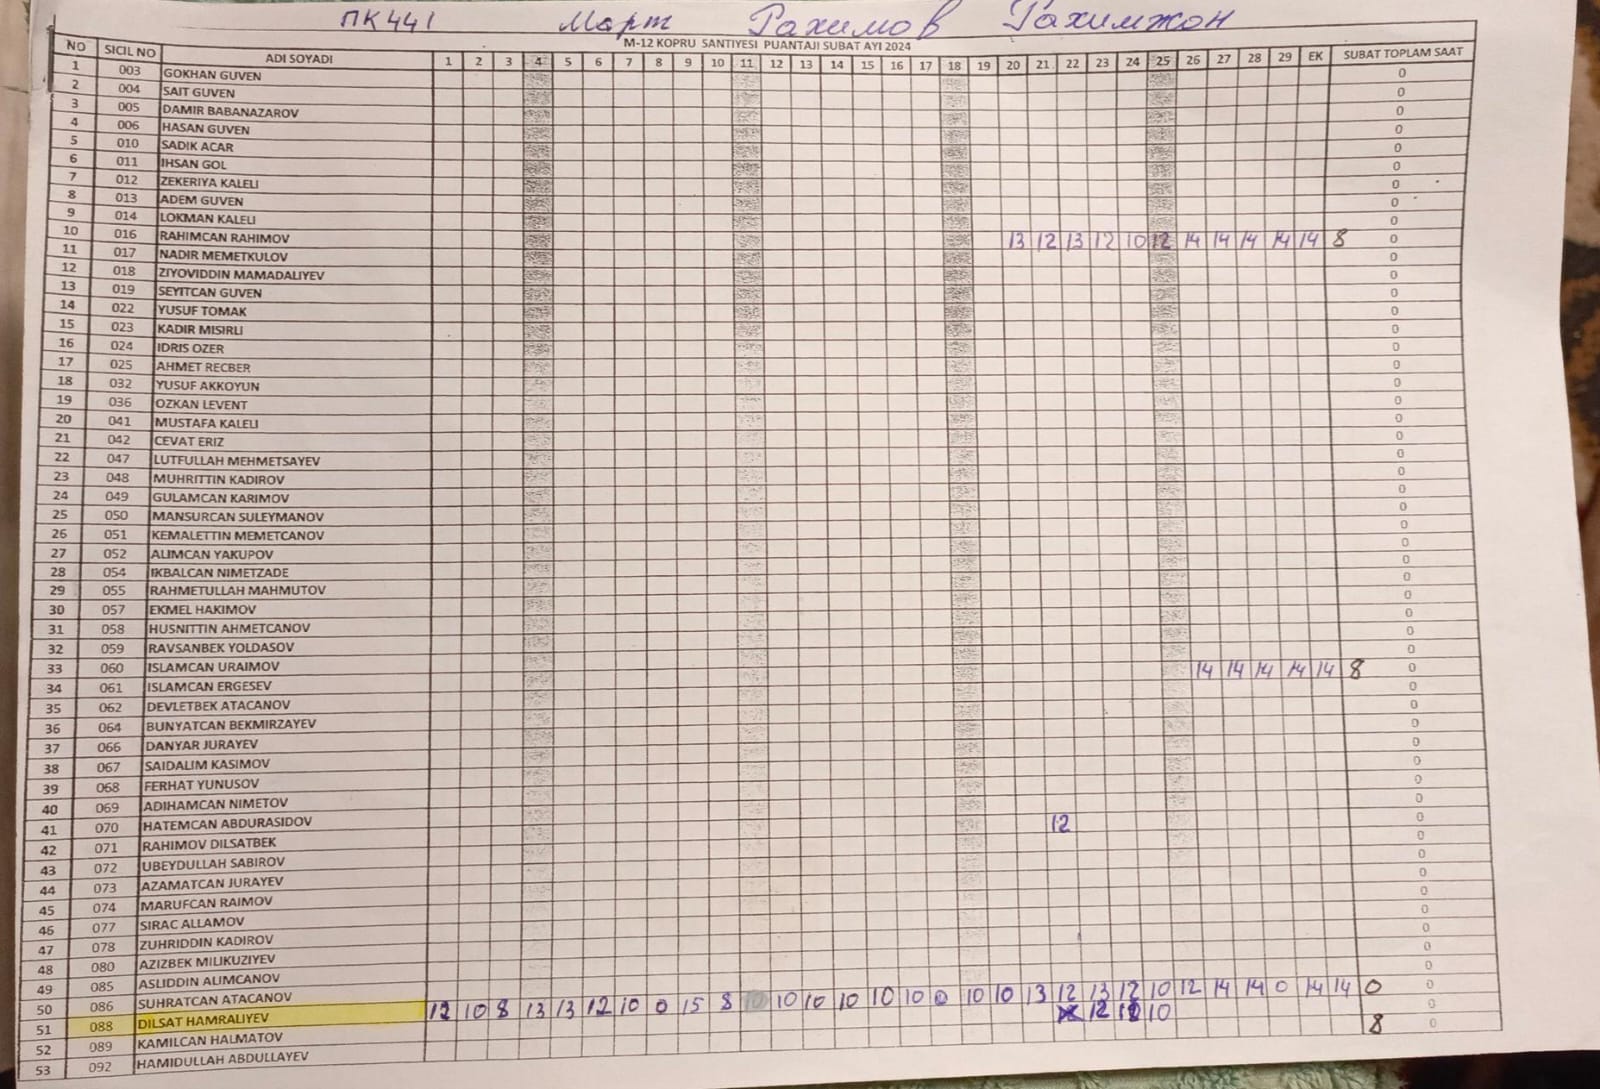 ПК441 Март Рахимов Рахимжон
M-12 KOPRU SANTIYESI PUANTAJI SUBAT AYI 2024
NO SICIL NO ADI SOYADI 1 2 3 4 5 6 7 8 9 10 11 12 13 14 15 16 17 18 19 20 21 22 23 24 25 26 27 28 29 EK SUBAT TOPLAM SAAT
1 003 GOKHAN GUVEN 0
2 004 SAIT GUVEN 0
3 005 DAMIR BABANAZAROV 0
4 006 HASAN GUVEN 0
5 010 SADIK ACAR 0
6 011 IHSAN GOL 0
7 012 ZEKERIYA KALELI 0
8 013 ADEM GUVEN 0
9 014 LOKMAN KALELI 0
10 016 RAHIMCAN RAHIMOV 13 12 13 12 10 12 14 14 14 14 14 8 0
11 017 NADIR MEMETKULOV 0
12 018 ZIYOVIDDIN MAMADALIYEV 0
13 019 SEYITCAN GUVEN 0
14 022 YUSUF TOMAK 0
15 023 KADIR MISIRLI 0
16 024 IDRIS OZER 0
17 025 AHMET RECBER 0
18 032 YUSUF AKKOYUN 0
19 036 OZKAN LEVENT 0
20 041 MUSTAFA KALELI 0
21 042 CEVAT ERIZ 0
22 047 LUTFULLAH MEHMETSAYEV 0
23 048 MUHRITTIN KADIROV 0
24 049 GULAMCAN KARIMOV 0
25 050 MANSURCAN SULEYMANOV 0
26 051 KEMALETTIN MEMETCANOV 0
27 052 ALIMCAN YAKUPOV 0
28 054 IKBALCAN NIMETZADE 0
29 055 RAHMETULLAH MAHMUTOV 0
30 057 EKMEL HAKIMOV 0
31 058 HUSNITTIN AHMETCANOV 0
32 059 RAVSANBEK YOLDASOV 0
33 060 ISLAMCAN URAIMOV 14 14 14 14 14 8 0
34 061 ISLAMCAN ERGESEV 0
35 062 DEVLETBEK ATACANOV 0
36 064 BUNYATCAN BEKMIRZAYEV 0
37 066 DANYAR JURAYEV 0
38 067 SAIDALIM KASIMOV 0
39 068 FERHAT YUNUSOV 0
40 069 ADIHAMCAN NIMETOV 0
41 070 HATEMCAN ABDURASIDOV 12 0
42 071 RAHIMOV DILSATBEK 0
43 072 UBEYDULLAH SABIROV 0
44 073 AZAMATCAN JURAYEV 0
45 074 MARUFCAN RAIMOV 0
46 077 SIRAC ALLAMOV 0
47 078 ZUHRIDDIN KADIROV 0
48 080 AZIZBEK MILIKUZIYEV 0
49 085 ASLIDDIN ALIMCANOV 0
50 086 SUHRATCAN ATACANOV 0
51 088 DILSAT HAMRALIYEV 12 10 8 13 13 12 10 0 15 8 10 10 10 10 10 10 0 10 10 13 12 13 12 10 12 14 14 0 14 14 0 0
52 089 KAMILCAN HALMATOV 12 10 8 0
53 092 HAMIDULLAH ABDULLAYEV